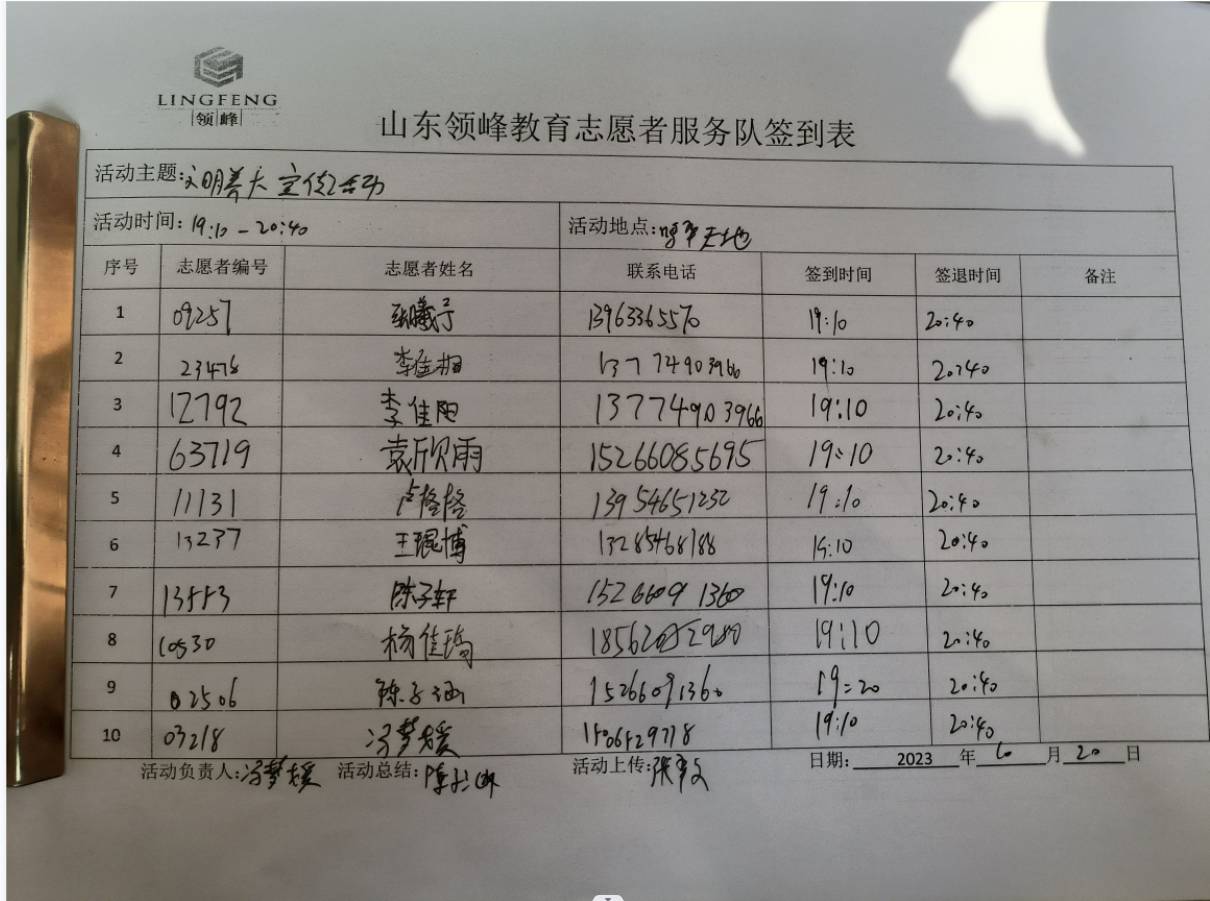 LINGFENG
领峰
山东领峰教育志愿者服务队签到表
活动主题:文明养犬宣传活动
活动时间:19:10-20:40 活动地点:天地
序号 志愿者编号 志愿者姓名 联系电话 签到时间 签退时间 备注
1 09257 13963365570 19:10 20:40
2 23476 李佳阳 13774903966 19:10 20:40
3 12792 李佳阳 13774903966 19:10 20:40
4 63719 袁欣雨 15266085695 19:10 20:40
5 11131 卢格格 13954651232 19:10 20:40
6 13237 王琨博 13285468188 19:10 20:40
7 13553 陈子轩 15266091360 19:10 20:40
8 10530 杨佳 19:10 20:40
9 02506 陈子涵 15266091360 19:20 20:40
10 03218 冯梦媛 19:10 20:40
活动负责人:冯梦媛 活动总结: 活动上传: 日期: 2023 年 6 月 20 日